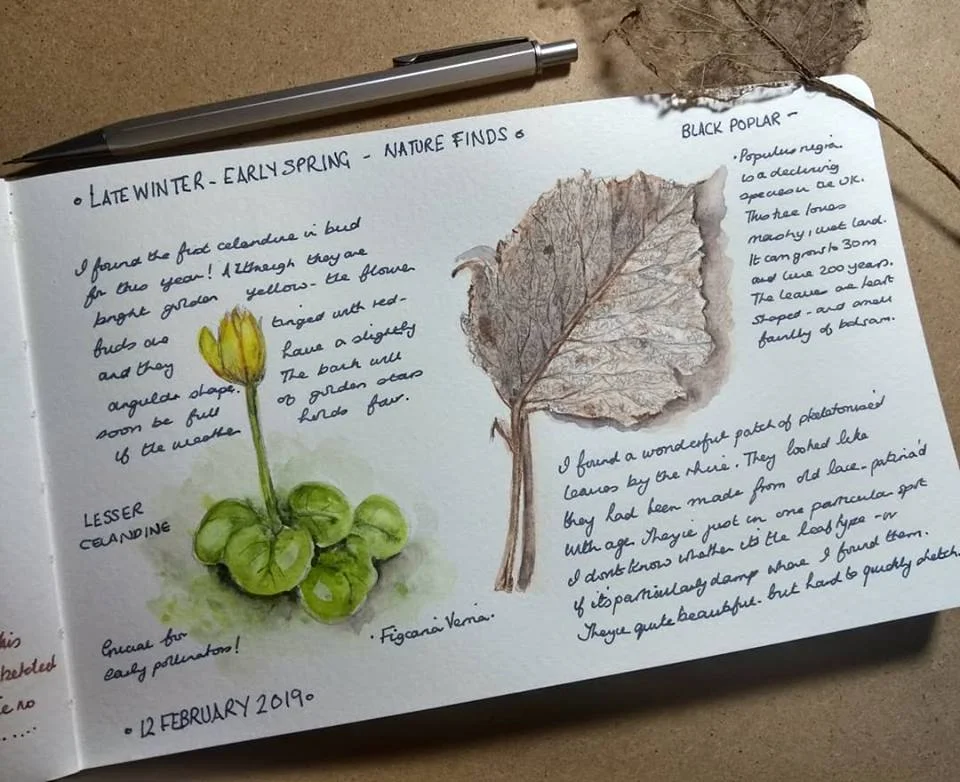 • LATE WINTER - EARLY SPRING - NATURE FINDS •
I found the first celandine in bud
for this year! Although they are
bright golden yellow - the flower
buds are tinged with red -
and they have a slightly
angular shape. The bank will
soon be full of golden stars
if the weather holds fair.
LESSER
CELANDINE
Crucial for
early pollinators!
• Ficaria Verna •
• 12 FEBRUARY 2019 •
BLACK POPLAR -
• Populus negra
is a declining
species in the UK.
This tree loves
marshy, wet land.
It can grow to 30m
and live 200 years.
The leaves are heart
shaped - and smell
faintly of balsam.
I found a wonderful patch of skeletonised
leaves by the . They looked like
they had been made from old lace - patina'd
with age. They're just in one particular spot
I don't know whether it's the leaf type - or
if it's particularly damp where I found them.
They're quite beautiful - but hard to quickly sketch.
his
sketched
no
.....